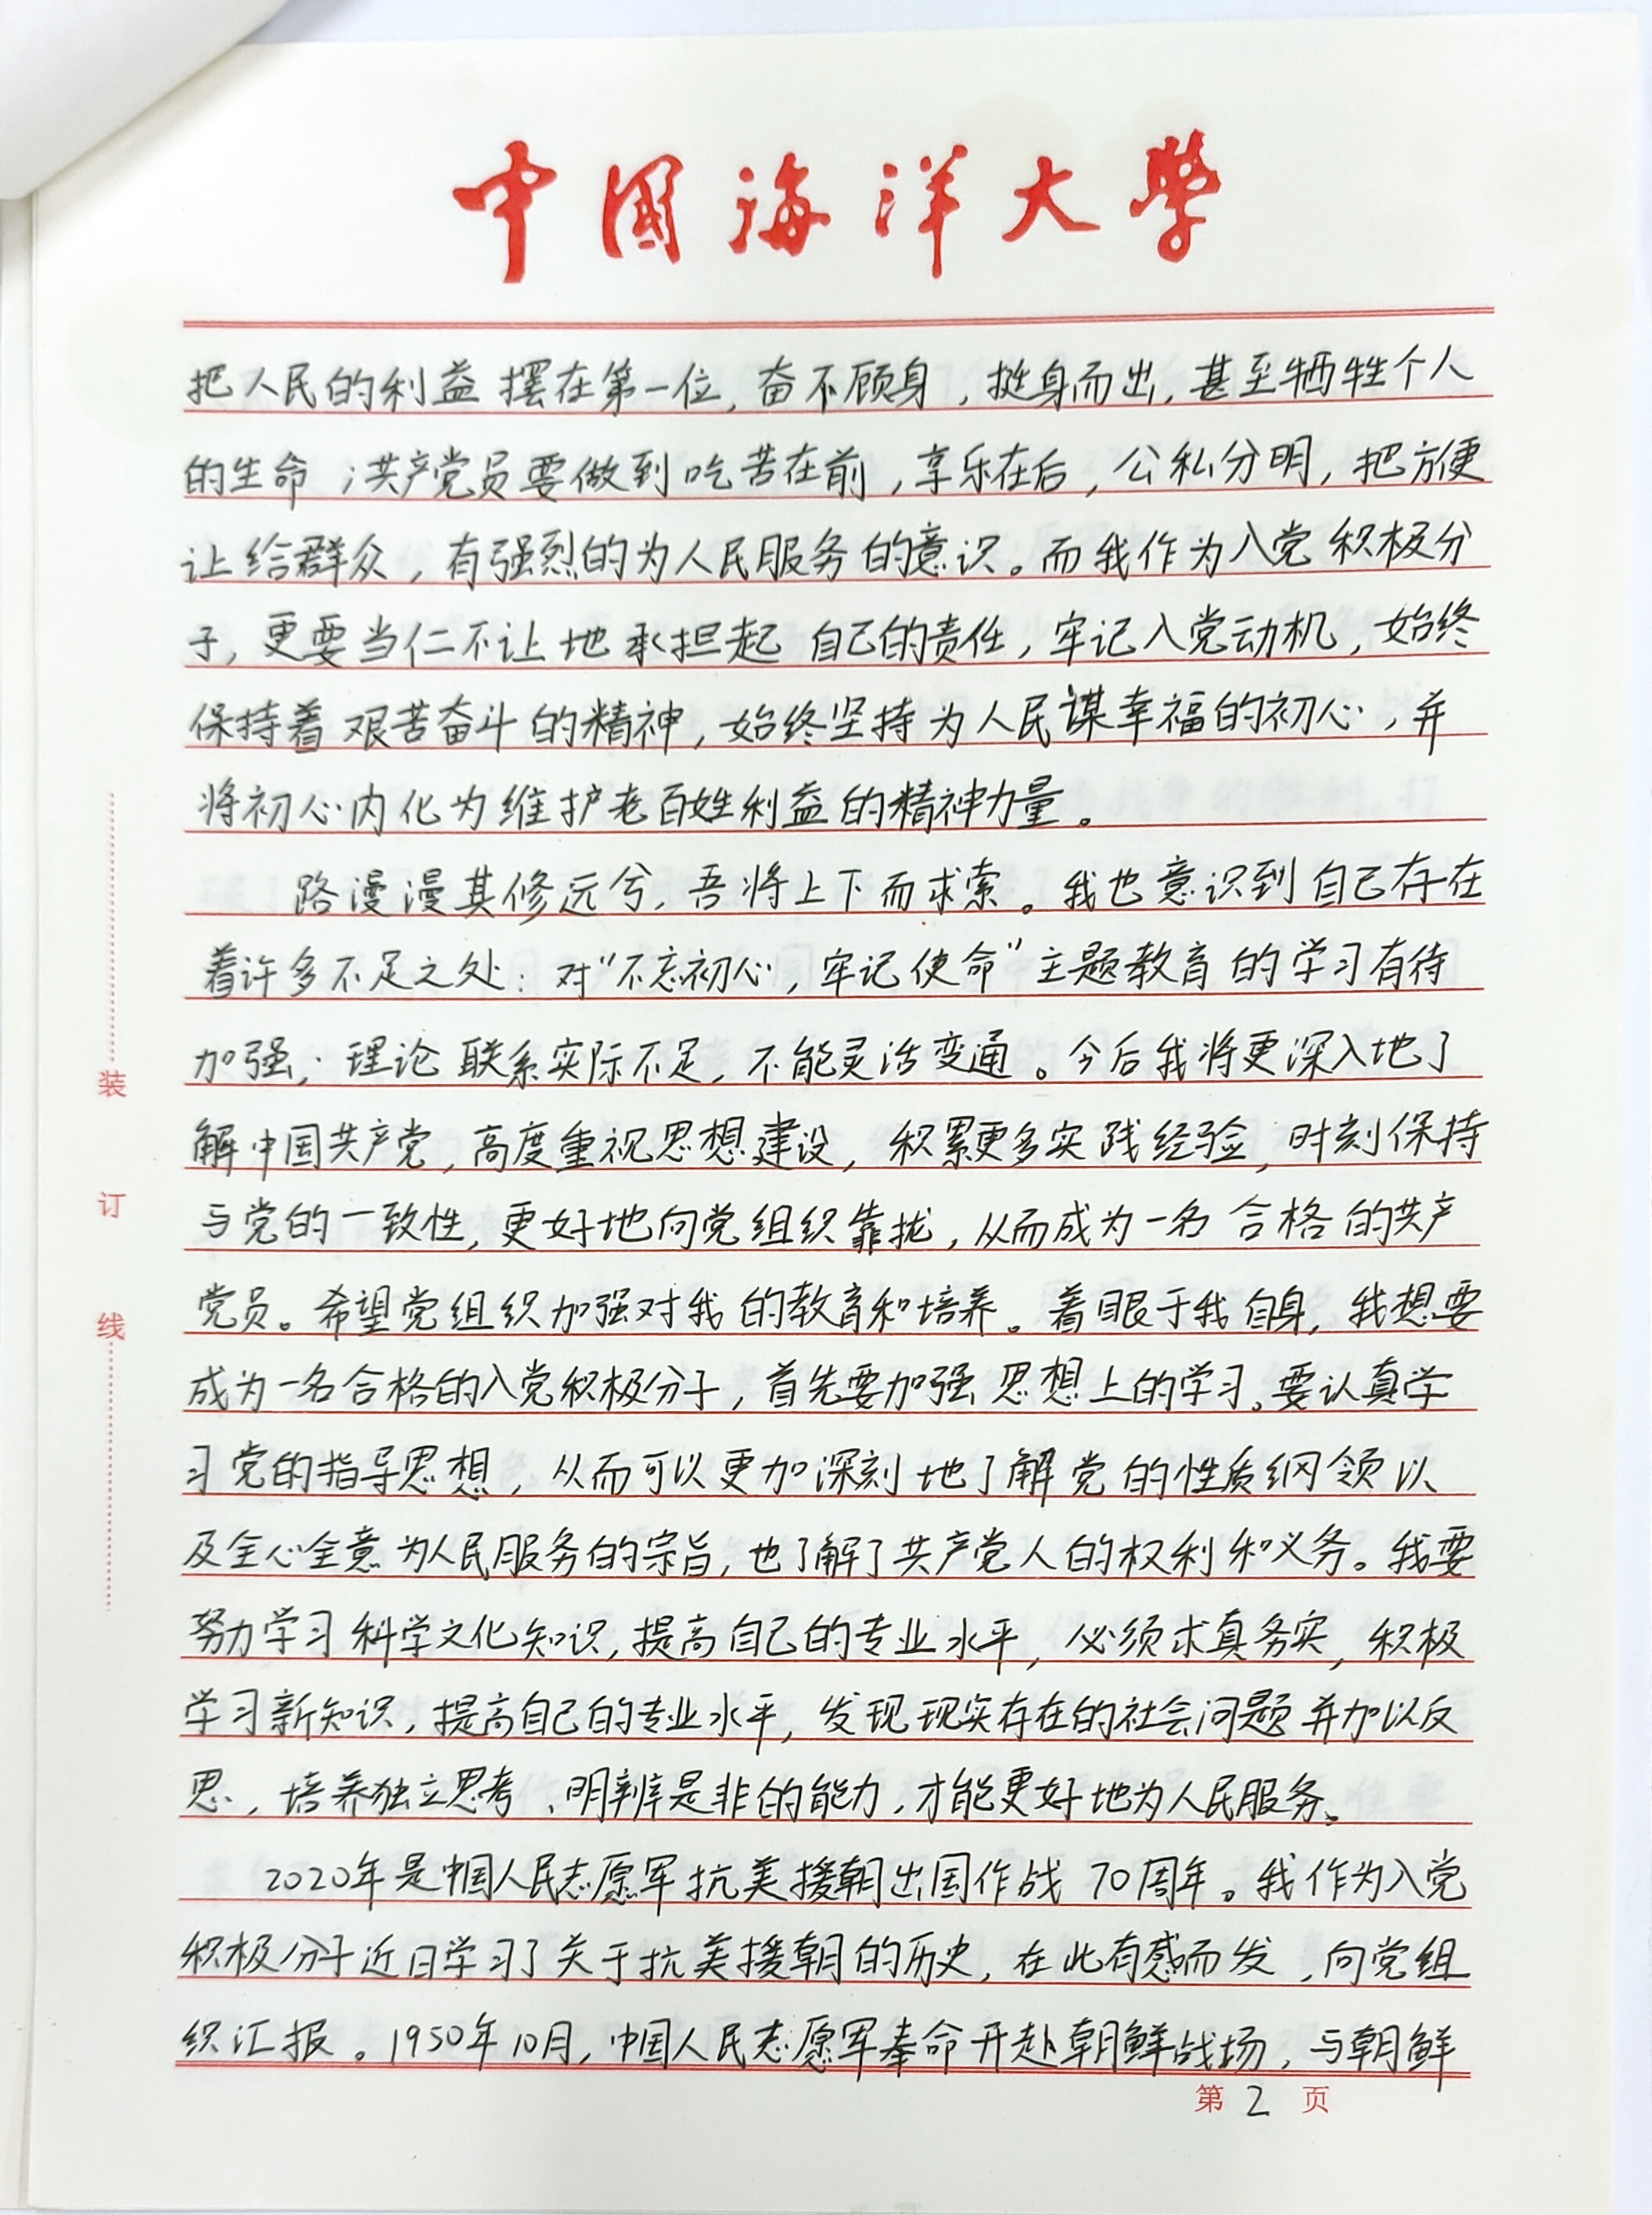 中国海洋大学
把人民的利益摆在第一位,奋不顾身,挺身而出,甚至牺牲个人
的生命;共产党员要做到吃苦在前,享乐在后,公私分明,把方便
让给群众,有强烈的为人民服务的意识。而我作为入党积极分
子,更要当仁不让地承担起自己的责任,牢记入党动机,始终
保持着艰苦奋斗的精神,始终坚持为人民谋幸福的初心,并
将初心内化为维护老百姓利益的精神力量。
路漫漫其修远兮,吾将上下而求索。我也意识到自己存在
着许多不足之处:对“不忘初心,牢记使命”主题教育的学习有待
加强;理论联系实际不足,不能灵活变通。今后我将更深入地了
解中国共产党,高度重视思想建设,积累更多实践经验,时刻保持
与党的一致性,更好地向党组织靠拢,从而成为一名合格的共产
党员。希望党组织加强对我的教育和培养。着眼于我自身,我想要
成为一名合格的入党积极分子,首先要加强思想上的学习。要认真学
习党的指导思想,从而可以更加深刻地了解党的性质纲领以
及全心全意为人民服务的宗旨,也了解了共产党人的权利和义务。我要
努力学习科学文化知识,提高自己的专业水平,必须求真务实,积极
学习新知识,提高自己的专业水平,发现现实存在的社会问题并加以反
思,培养独立思考、明辨是非的能力,才能更好地为人民服务。
2020年是中国人民志愿军抗美援朝出国作战70周年。我作为入党
积极分子近日学习了关于抗美援朝的历史,在此有感而发,向党组
织汇报。1950年10月,中国人民志愿军奉命开赴朝鲜战场,与朝鲜
第2页
装
订
线